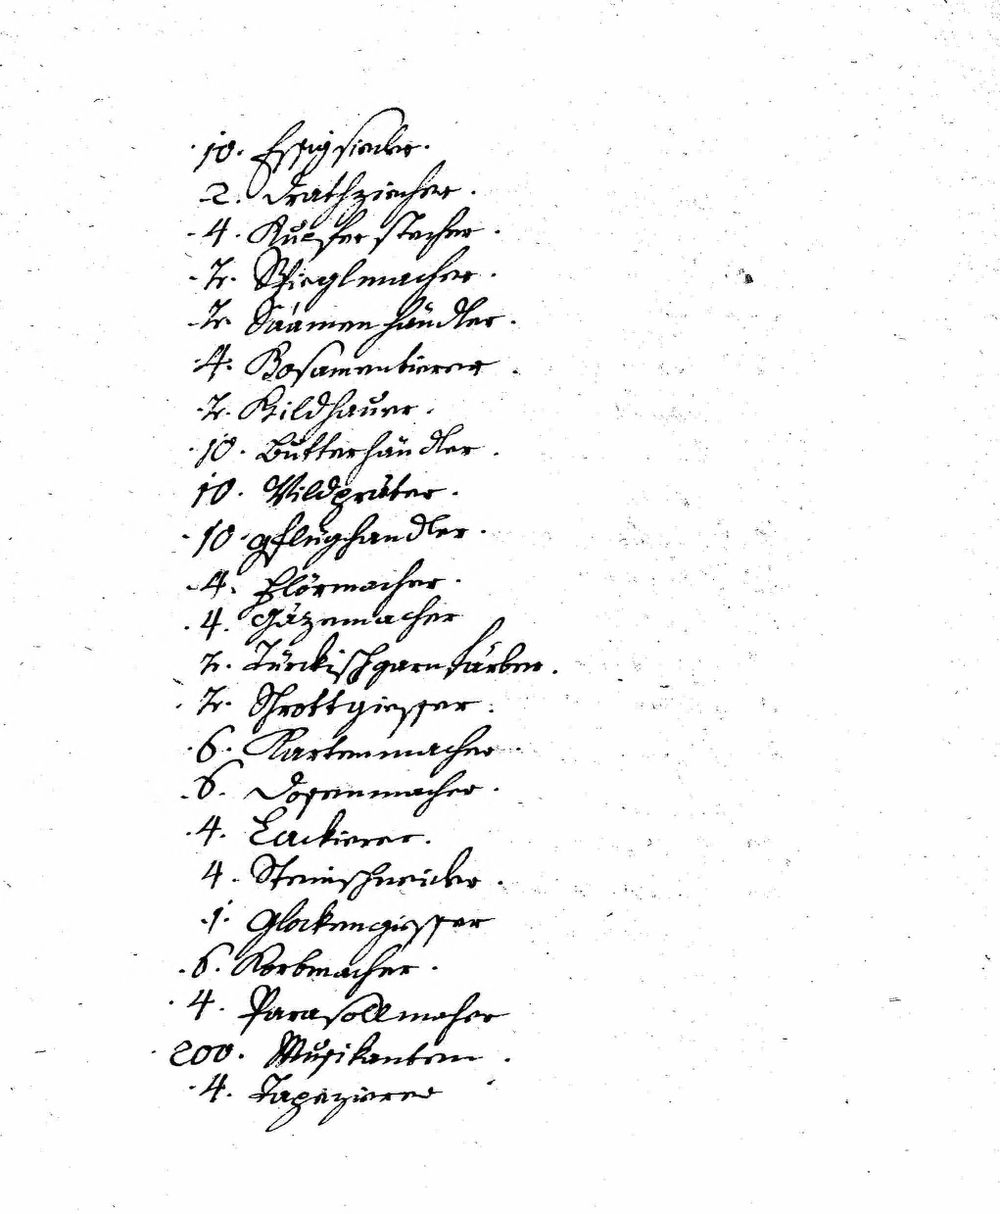 10. Essigsieder.
2. Drathziecher.
4. Kupferstecher.
2. Spieglmacher.
2. Saamenhändler.
4. Bosamentierer.
2. Bildhauer.
10. Butterhändler.
10. Wildpräter.
10. gflüghandler.
4. Flörmacher.
4. Gäzemacher
2. Türckischgarn färber.
2. Schrottgiesser.
6. Kartenmacher.
6. Dosenmacher.
4. Lackierer.
4. Steinschneider.
1. Glockengiesser
6. Korbmacher.
4. Parasollmacher
200. Musikanten.
4. Tapezierer